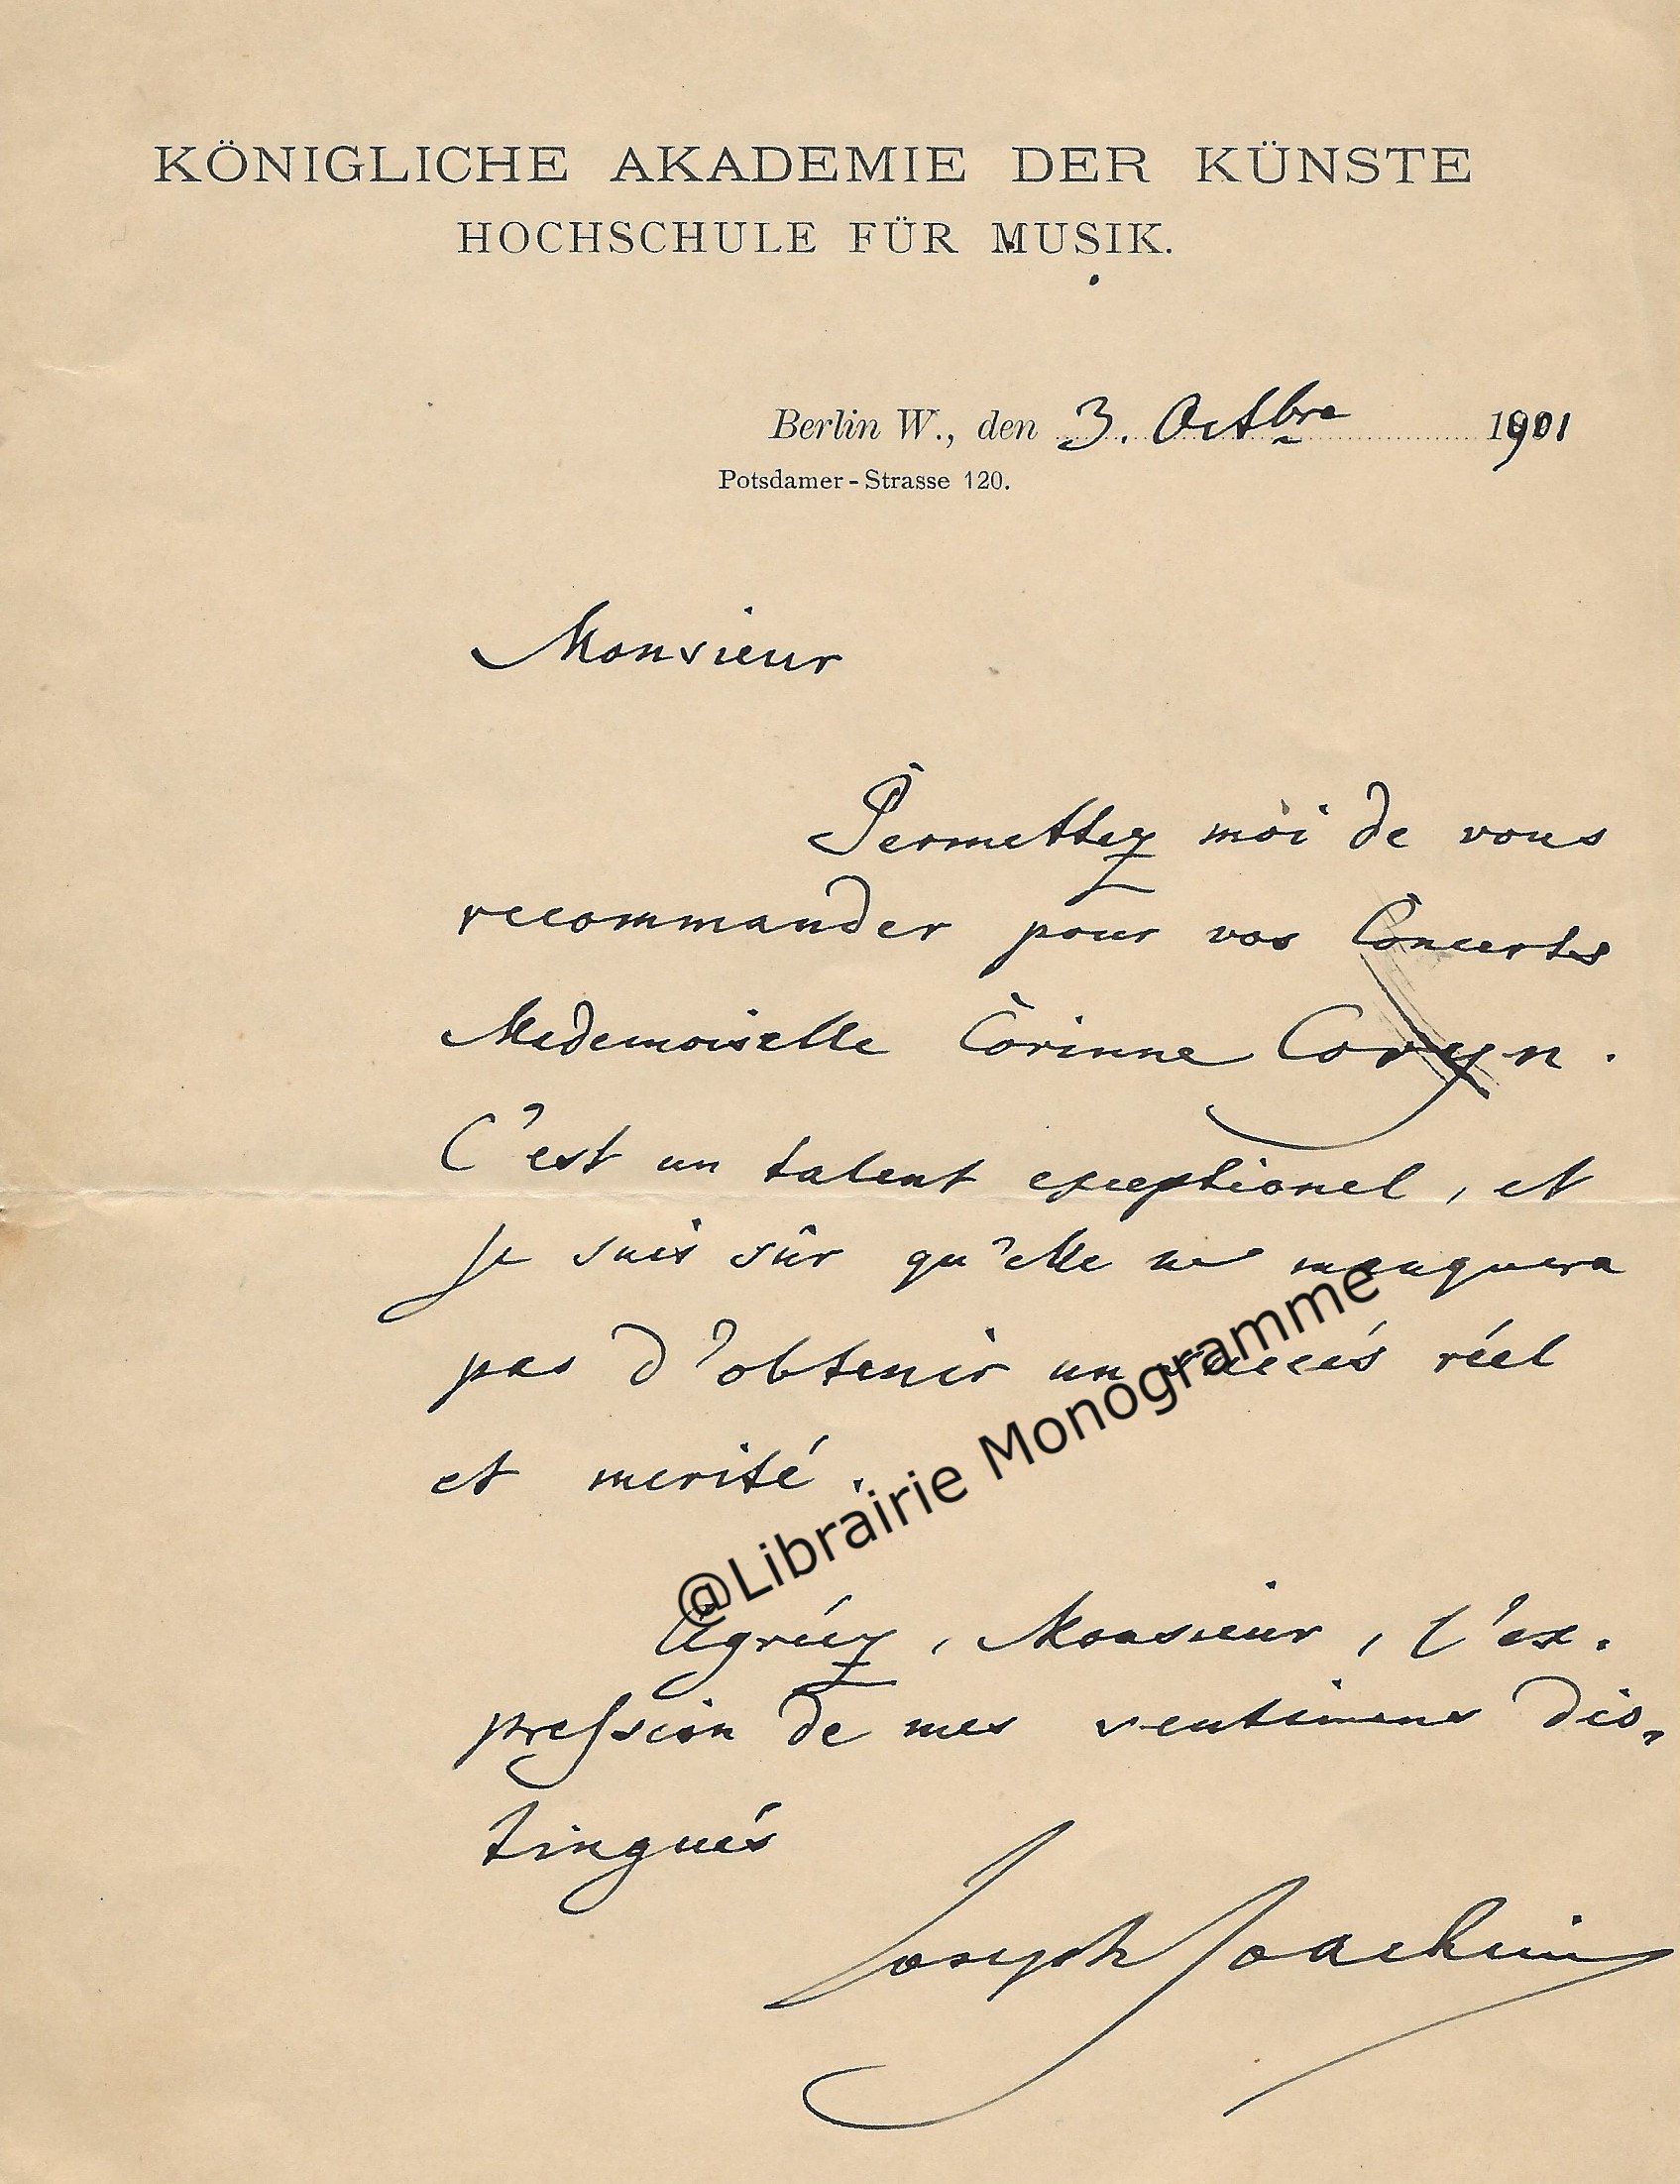 KÖNIGLICHE AKADEMIE DER KÜNSTE
HOCHSCHULE FÜR MUSIK.
Berlin W., den 3. Octbre 1901
Potsdamer-Strasse 120.
Monsieur
Permettez moi de vous
recommander pour vos Concerts
Mademoiselle Corinne Coryn.
C'est un talent exceptionel, et
je suis sûr qu'elle ne manquera
pas d'obtenir un succés réel
et merité.
Agréez, Monsieur, l'ex-
pression de mes sentimens dis-
tingués
Joseph Joachim
@Librairie Monogramme